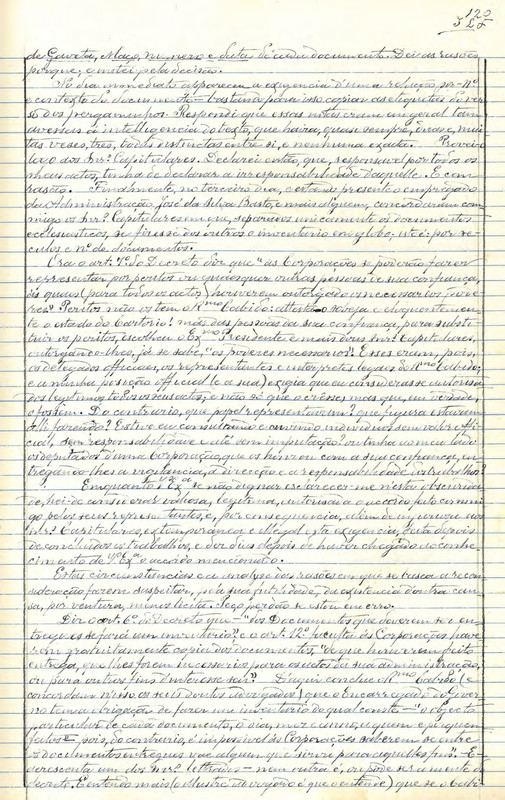 120
de Gaveta, Maço, numero e data de cada documento. Dei as rasões
porque; e instei pela decisão.
No dia immediato appareceu a exigencia d'uma relação por Nos
e contexto do documento – bastando para isso copiar as etiquetas do ver-
so dos pergaminhos. Respondi que essas notas eram em geral tam
diversas á intelligencia do texto, que havia, quasi sempre, duas e, mui-
tas veses, tres, todas distinctas entre si, e nenhuma exacta.
levo aos Snrs. Capitulares. Declarei então, que, responsavel por todos os
meus actos, tinha de declarar a irresponsabilidade d'aquelle. E com
rasão. Finalmente, no terceiro dia, estando presente o empregado
da Administração José da Silva Basto, e mais alguem, concordaram com-
migo os Snrs. Capitulares em que, separados unicamente os documentos
ecclesiasticos, se fisesse dos outros o inventario em globo, isto é: por se-
culos e no. de documentos.
Ora o art. 7. do Decreto diz que "as Corporações se poderão fazer
representar por peritos ou quaesquer outras pessoas da sua confiança,
ás quaes (para todos os actos) houverem outorgado os necessarios pode-
res." Peritos não os tem o Rmo Cabido: attesta-o sobeja e eloquentemen-
te o estado do Cartorio; mas das pessoas da sua confiança, para substi-
tuir os peritos, escolheu o Exmo Presidente e mais dois Snrs. Capitulares,
outorgando-lhes, já se sabe, "os poderes necessarios". Esses eram, pois,
os delegados officiaes, os representantes e interpretes legaes do Rmo Cabido;
e a minha posição official (e a sua) exigia que eu considerasse authorisa-
dos e legitimos todos os seus actos; e não só que o cresse mas que, em verdade,
o fossem. Do contrario, que papel representavam? que figura estavam
alli fazendo? Estive eu consultando e ouvindo individuos sem valor offi-
cial, sem responsabilidade e até sem imputação? ou tinha ao meu lado
os deputados d'uma Corporação, que os honrou com a sua confiança, en-
tregando-lhes a vigilancia, a direcção e a responsabilidade dos trabalhos?
Emquanto V. Exa. se não dignar esclarecer-me nesta obscurida-
de, hei de considerar valiosa, legitima, authorisada o accordo feito commi-
go pelos seus representantes, e, por consequencia, alem de
Snrs. Capitulares, extemporanea e illegal esta exigencia, feita depois
de concluidos os trabalhos, e dois dias depois de haver chegado ao conhe-
cimento de V. Exa. o accordo mencionado.
Estas circumstancias e a analyse das rasões em que se busca a recon-
sideração fazem suspeitar, pela sua futilidade, da existencia d'outra cau-
sa, por ventura, menos licita. Peço perdão se estou em erro.
Diz o art. 6. do Decreto que – "dos Documentos que deverem ser en-
tregues se fará um inventario"; e o art. 12. faculta ás Corporações have-
rem gratuitamente copia dos documentos, "de que houverem feito
entrega, que lhes forem necessarios para os actos da sua administração,
ou para outros fins d'interesse seu". D'aqui conclue o Rmo Cabido (e
concordam nisso os seus doutos advogados) que o Encarregado do Gover-
no tem a obrigação de fazer um inventario do qual conste – "o objecto
particular de cada documento, o dia, mez e anno, e quem e porquem
feitos" – pois, do contrario, é impossivel ás Corporações saberem se entre
os documentos entregues vae algum que sirva para aquelles fins". – E
accrescenta um dos Snrs. letrados – nem outra é, ou póde ser a mente do
Decreto. Entendo mais (o illustre advogado é que o entende) que se o Cabi-